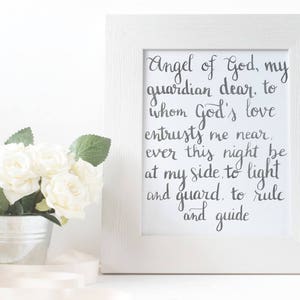 Angel of God, my
guardian dear, to
whom God's love
entrusts me near,
ever this night be
at my side, to light
and guard, to rule
and guide